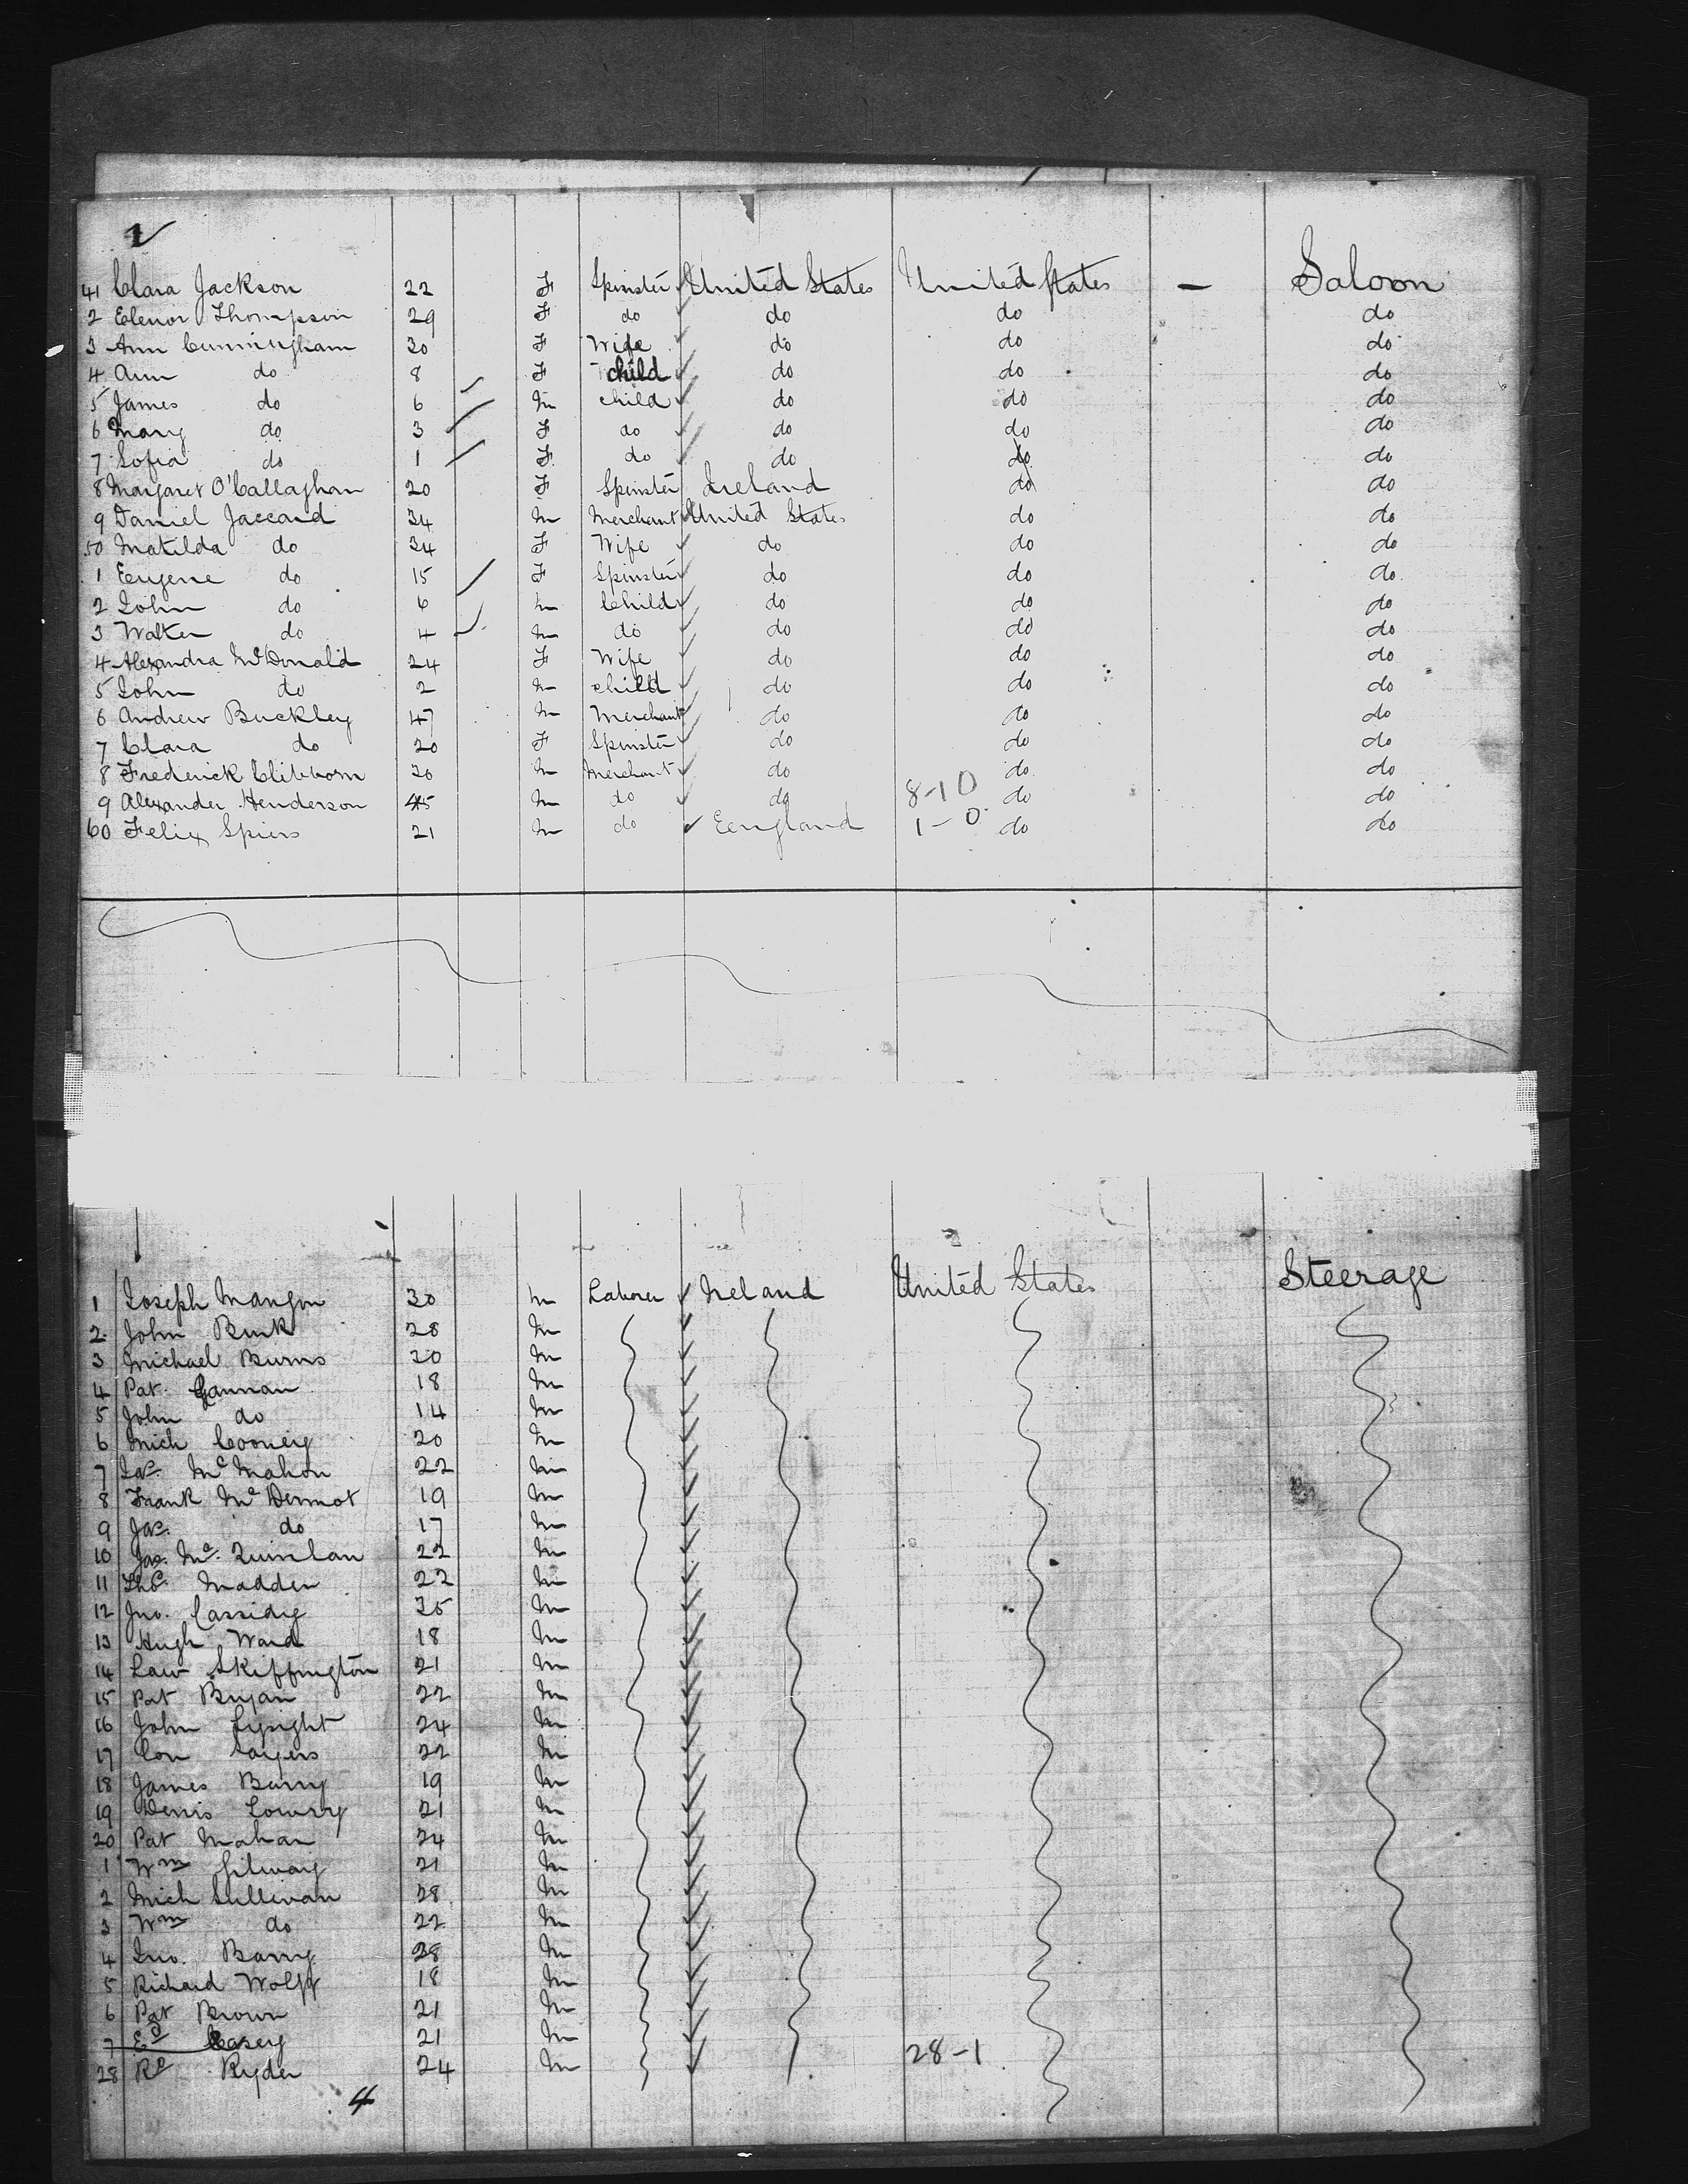 2
41 Clara Jackson 22 F Spinster United States United States — Saloon
2 Elenor Thompson 29 F do do do do
3 Ann Cunningham 30 F Wife do do do
4 Ann do 8 F child do do do
5 James do 6 M child do do do
6 Mary do 3 F do do do do
7 Sofia do 1 F do do do do
8 Margaret O'Callaghan 20 F Spinster Ireland do do
9 Daniel Jaccard 34 M Merchant United States do do
50 Matilda do 34 F Wife do do do
1 Eugene do 15 F Spinster do do do
2 John do 6 M Child do do do
3 Walter do 4 M do do do do
4 Alexandra McDonald 24 F Wife do do do
5 John do 2 M child do do do
6 Andrew Buckley 47 M Merchant do do do
7 Clara do 20 F Spinster do do do
8 Frederick Clibborn 30 M Merchant do do do
9 Alexander Henderson 45 M do do 8-10 do do
60 Felix Spiers 21 M do England 1-0 do do
1 Joseph Mangon 30 M Laborer Ireland United States Steerage
2 John Burk 28 M
3 Michael Burns 20 M
4 Pat. Gannan 18 M
5 John do 14 M
6 Mich Cooney 20 M
7 Jas. McMahon 22 M
8 Frank McDermot 19 M
9 Jas. do 17 M
10 Jas. Mc. Quinlan 22 M
11 Thos. Madden 22 M
12 Jno. Cassidy 35 M
13 Hugh Ward 18 M
14 Law Skiffington 21 M
15 Pat Bryan 22 M
16 John Lysight 24 M
17 Con Sayers 22 M
18 James Barry 19 M
19 Denis Lowry 21 M
20 Pat Mahan 24 M
1 Wm Gilway 21 M
2 Mich Sullivan 28 M
3 Wm do 22 M
4 Jno. Barry 28 M
5 Richard Wolff 18 M
6 Pat Brown 21 M
7 Ed Casey 21 M
28 Rd Ryder 24 M 28-1
4